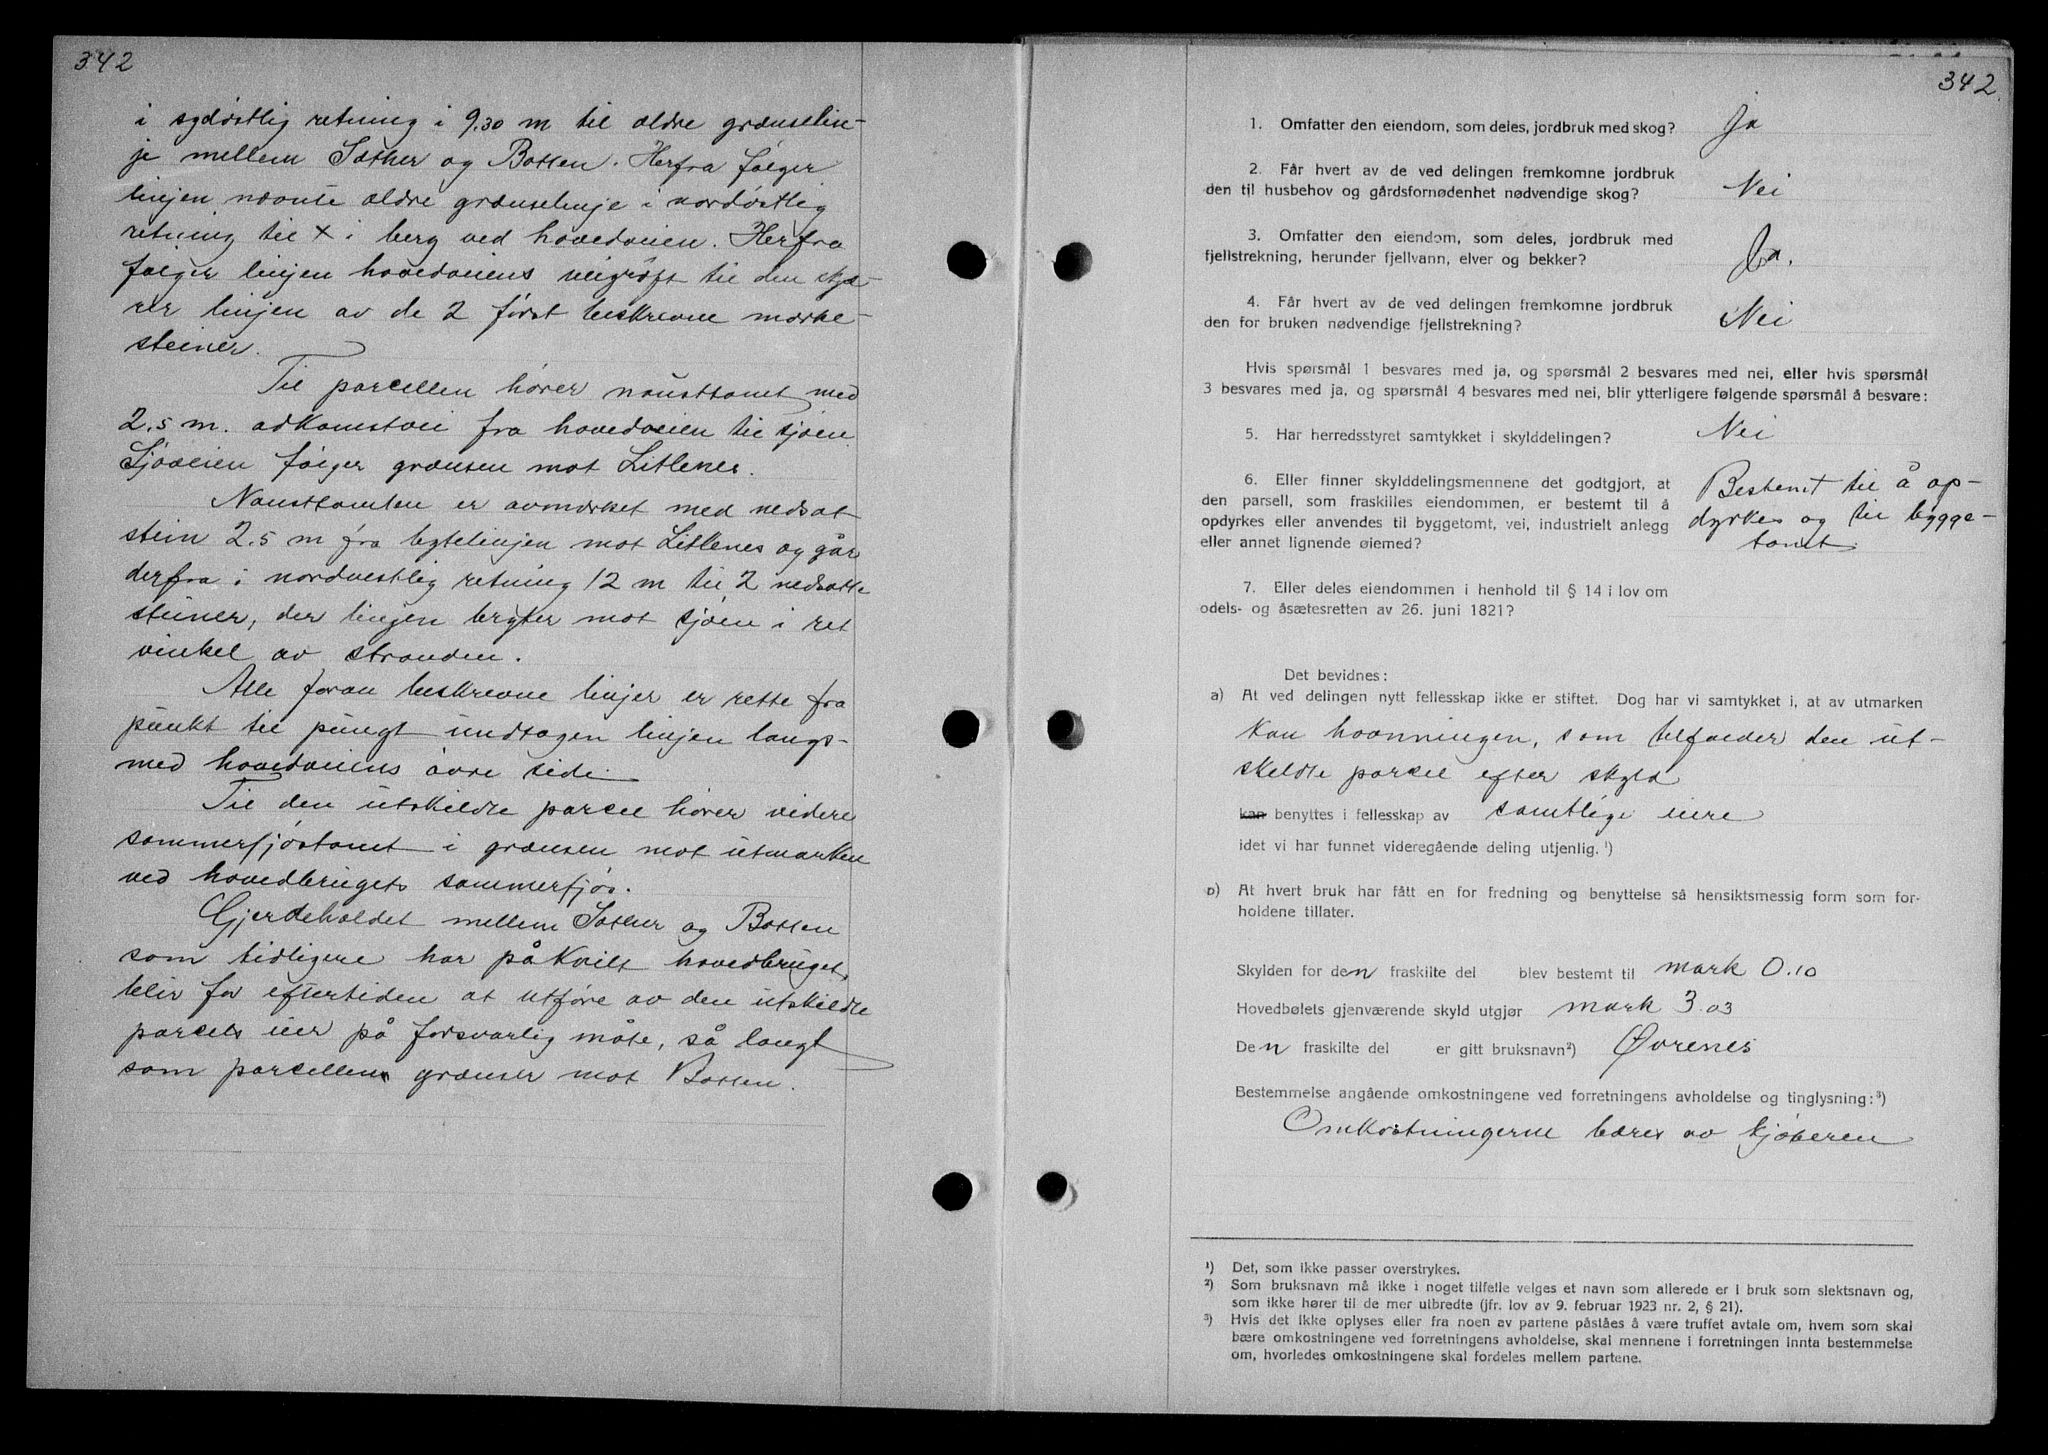 342
i sydøstlig retning i 9.30 m til ældre grænselin-
je mellem Sæther og Botten. Herfra følger
linjen nævnte ældre grænselinje i nordøstlig
retning til x i berg ved hovedveien. Herfra
følger linjen hovedveiens veigrøft til den skjæ-
rer linjen av de 2 først beskrevne merke-
steiner.
Til parcellen hører nausttomt med
2.5 m. adkomstvei fra hovedveien til sjøen
Sjøveien følger grænsen mot Litlenes.
Nausttomten er avmerket med nedsat
stein 2.5 m fra bytelinjen mot Litlenes og går
derfra i nordvestlig retning 12 m til 2 nedsatte
steiner, der linjen bryter mot sjøen i ret
vinkel av stranden.
Alle foran beskrevne linjer er rette fra
punkt til pungt undtagen linjen langs-
med hovedveiens øvre side.
Til den utskildte parcel hører videre
sommerfjøstomt i grænsen mot utmarken
ved hovedbrugets sommerfjøs.
Gjerdeholdet mellem Sæther og Botten
som tidligere har påkvilt hovedbruget,
blir for eftertiden at utføre av den utskildte
parcels eier på forsvarlig måte, så langt
som parcellen grænser mot Botten.
342.
1. Omfatter den eiendom, som deles, jordbruk med skog? Ja
2. Får hvert av de ved delingen fremkomne jordbruk
den til husbehov og gårdsfornødenhet nødvendige skog? Nei
3. Omfatter den eiendom, som deles, jordbruk med
fjellstrekning, herunder fjellvann, elver og bekker? Ja.
4. Får hvert av de ved delingen fremkomne jordbruk
den for bruken nødvendige fjellstrekning? Nei
Hvis spørsmål 1 besvares med ja, og spørsmål 2 besvares med nei, eller hvis spørsmål
3 besvares med ja, og spørsmål 4 besvares med nei, blir ytterligere følgende spørsmål å besvare:
5. Har herredsstyret samtykket i skylddelingen? Nei
6. Eller finner skylddelingsmennene det godtgjort, at
den parsell, som fraskilles eiendommen, er bestemt til å
opdyrkes eller anvendes til byggetomt, vei, industrielt anlegg
eller annet lignende øiemed?
Bestemt til å op-
dyrkes og til bygge-
tomt.
7. Eller deles eiendommen i henhold til § 14 i lov om
odels- og åsætesretten av 26. juni 1821?
Det bevidnes:
a) At ved delingen nytt fellesskap ikke er stiftet. Dog har vi samtykket i, at av utmarken
kan havnningen, som tilfalder den ut-
skildte parcel efter skyld
kan benyttes i fellesskap av samtlige eiere
idet vi har funnet videregående deling utjenlig.¹)
b) At hvert bruk har fått en for fredning og benyttelse så hensiktsmessig form som for-
holdene tillater.
Skylden for den fraskilte del blev bestemt til mark 0.10
Hovedbølets gjenværende skyld utgjør mark 3.03
Den fraskilte del er gitt bruksnavn²) Øvrenes
Bestemmelse angående omkostningene ved forretningens avholdelse og tinglysning:³)
Omkostningerne bæres av kjøberen
¹) Det, som ikke passer overstrykes.
²) Som bruksnavn må ikke i noget tilfelle velges et navn som allerede er i bruk som slektsnavn og,
som ikke hører til de mer utbredte (jfr. lov av 9. februar 1923 nr. 2, § 21).
³) Hvis det ikke oplyses eller fra noen av partene påståes å være truffet avtale om, hvem som skal
bære omkostningene ved forretningens avholdelse, skal mennene i forretningen innta bestemmelse
om, hvorledes omkostningene skal fordeles mellem partene.